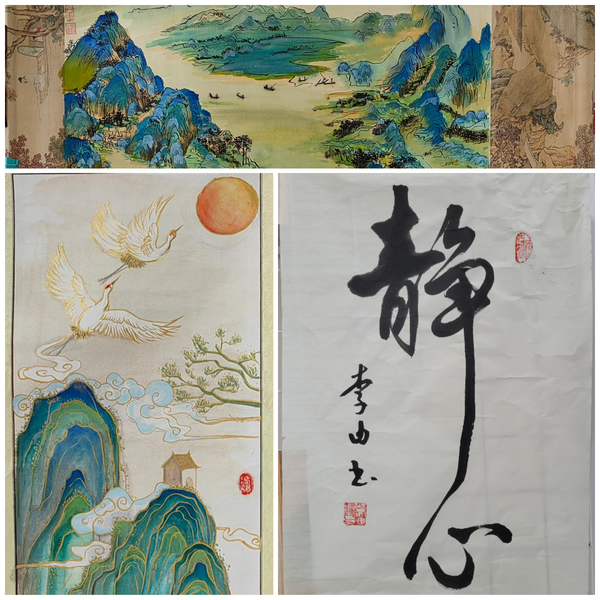 静心
李由书